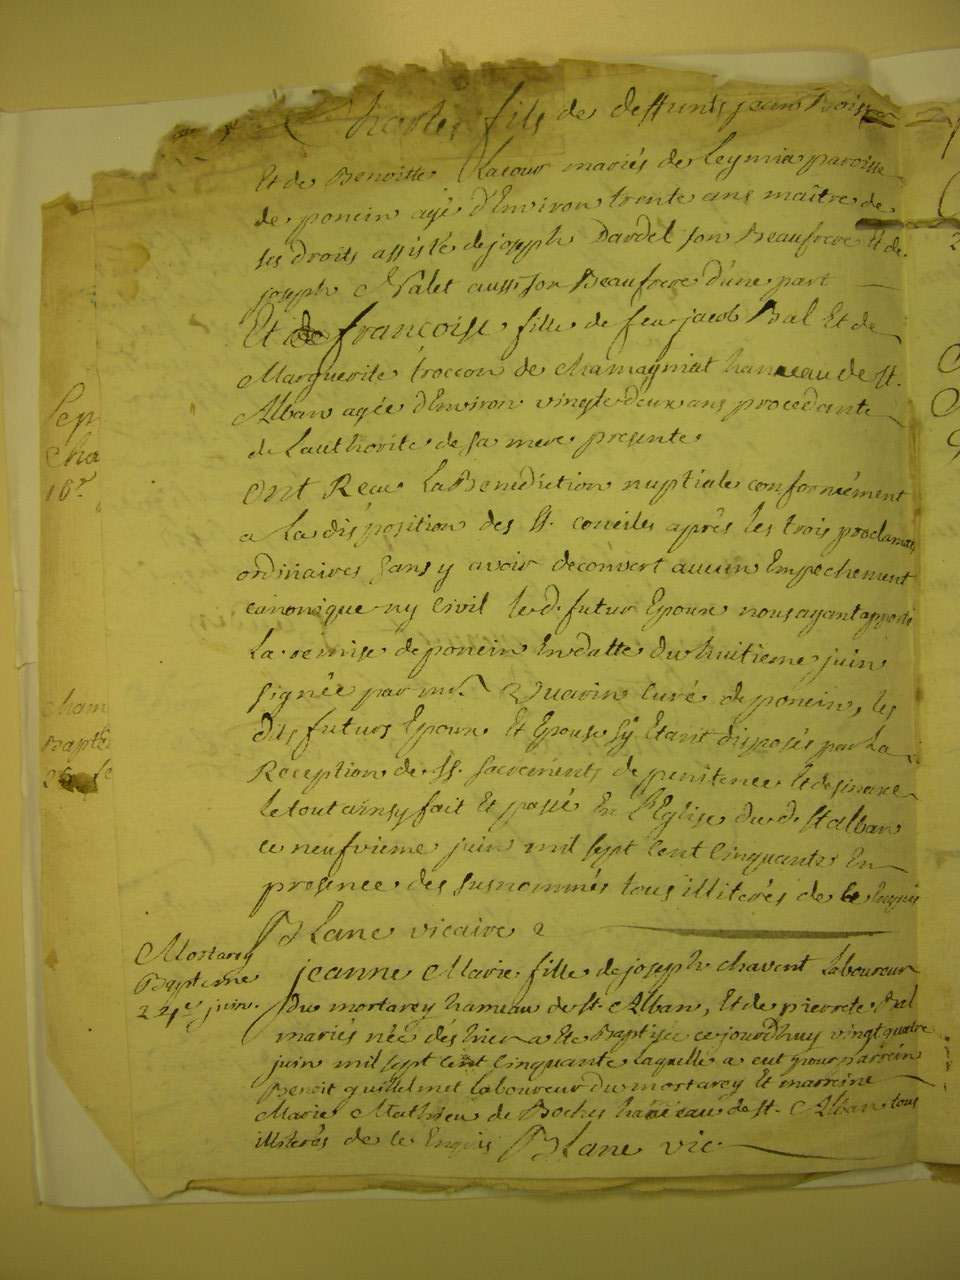 Charles fils de deffunts jean Rois
Et de Benoitte Lacour mariés de Leymia paroisse
de poncin agé d'Environ trente ans maître de
ses droits assisté de joseph Dardel son Beaufrere Et de
joseph Nalet aussi son Beaufrere d'une part
Et de francoise fille de feu jacob Bal Et de
Marguerite troccon de chamagniat hameau de st.
Alban agée d'Environ vingt deux ans procedante
de Lauthorité de sa mere presente
Ont Receu La Benediction nuptiale conformément
a La disposition des St. conciles après les trois proclamaõns
ordinaires sans y avoir decouvert aucun Empechement
canonique ny civil le d. futur Epoux nous ayant apporté
La remise de poncin En datte du huitieme juin
signée par mr. Vuarin curé de poncin, les
dits futurs Epoux Et Epouse sy Etant disposés par La
Reception de SS. sacrements de penitence Et de mare
le tout ainsy fait Et passé En l'Eglise du d. St alban
ce neufvieme juin mil sept cent cinquante En
presence des susnommés tous illiterés de ce Enquis
BLanc vicaire
Mortarey
Baptême
24e juin.
jeanne Marie fille de joseph chavent Laboureur
du mortarey hameau de st. Alban, Et de pierrete Bal
mariés née dés hier a été Baptisée ce jourdhuy vingt quatre
juin mil sept cent cinquante laquelle a eut pour parrein
Benoit guillelmet laboureur du mortarey Et marreine
Marie Mathieu de Boches hameau de st. Alban tous
illiterés de ce Enquis BLanc vic.
Cha
16e
cham
Bapte
26